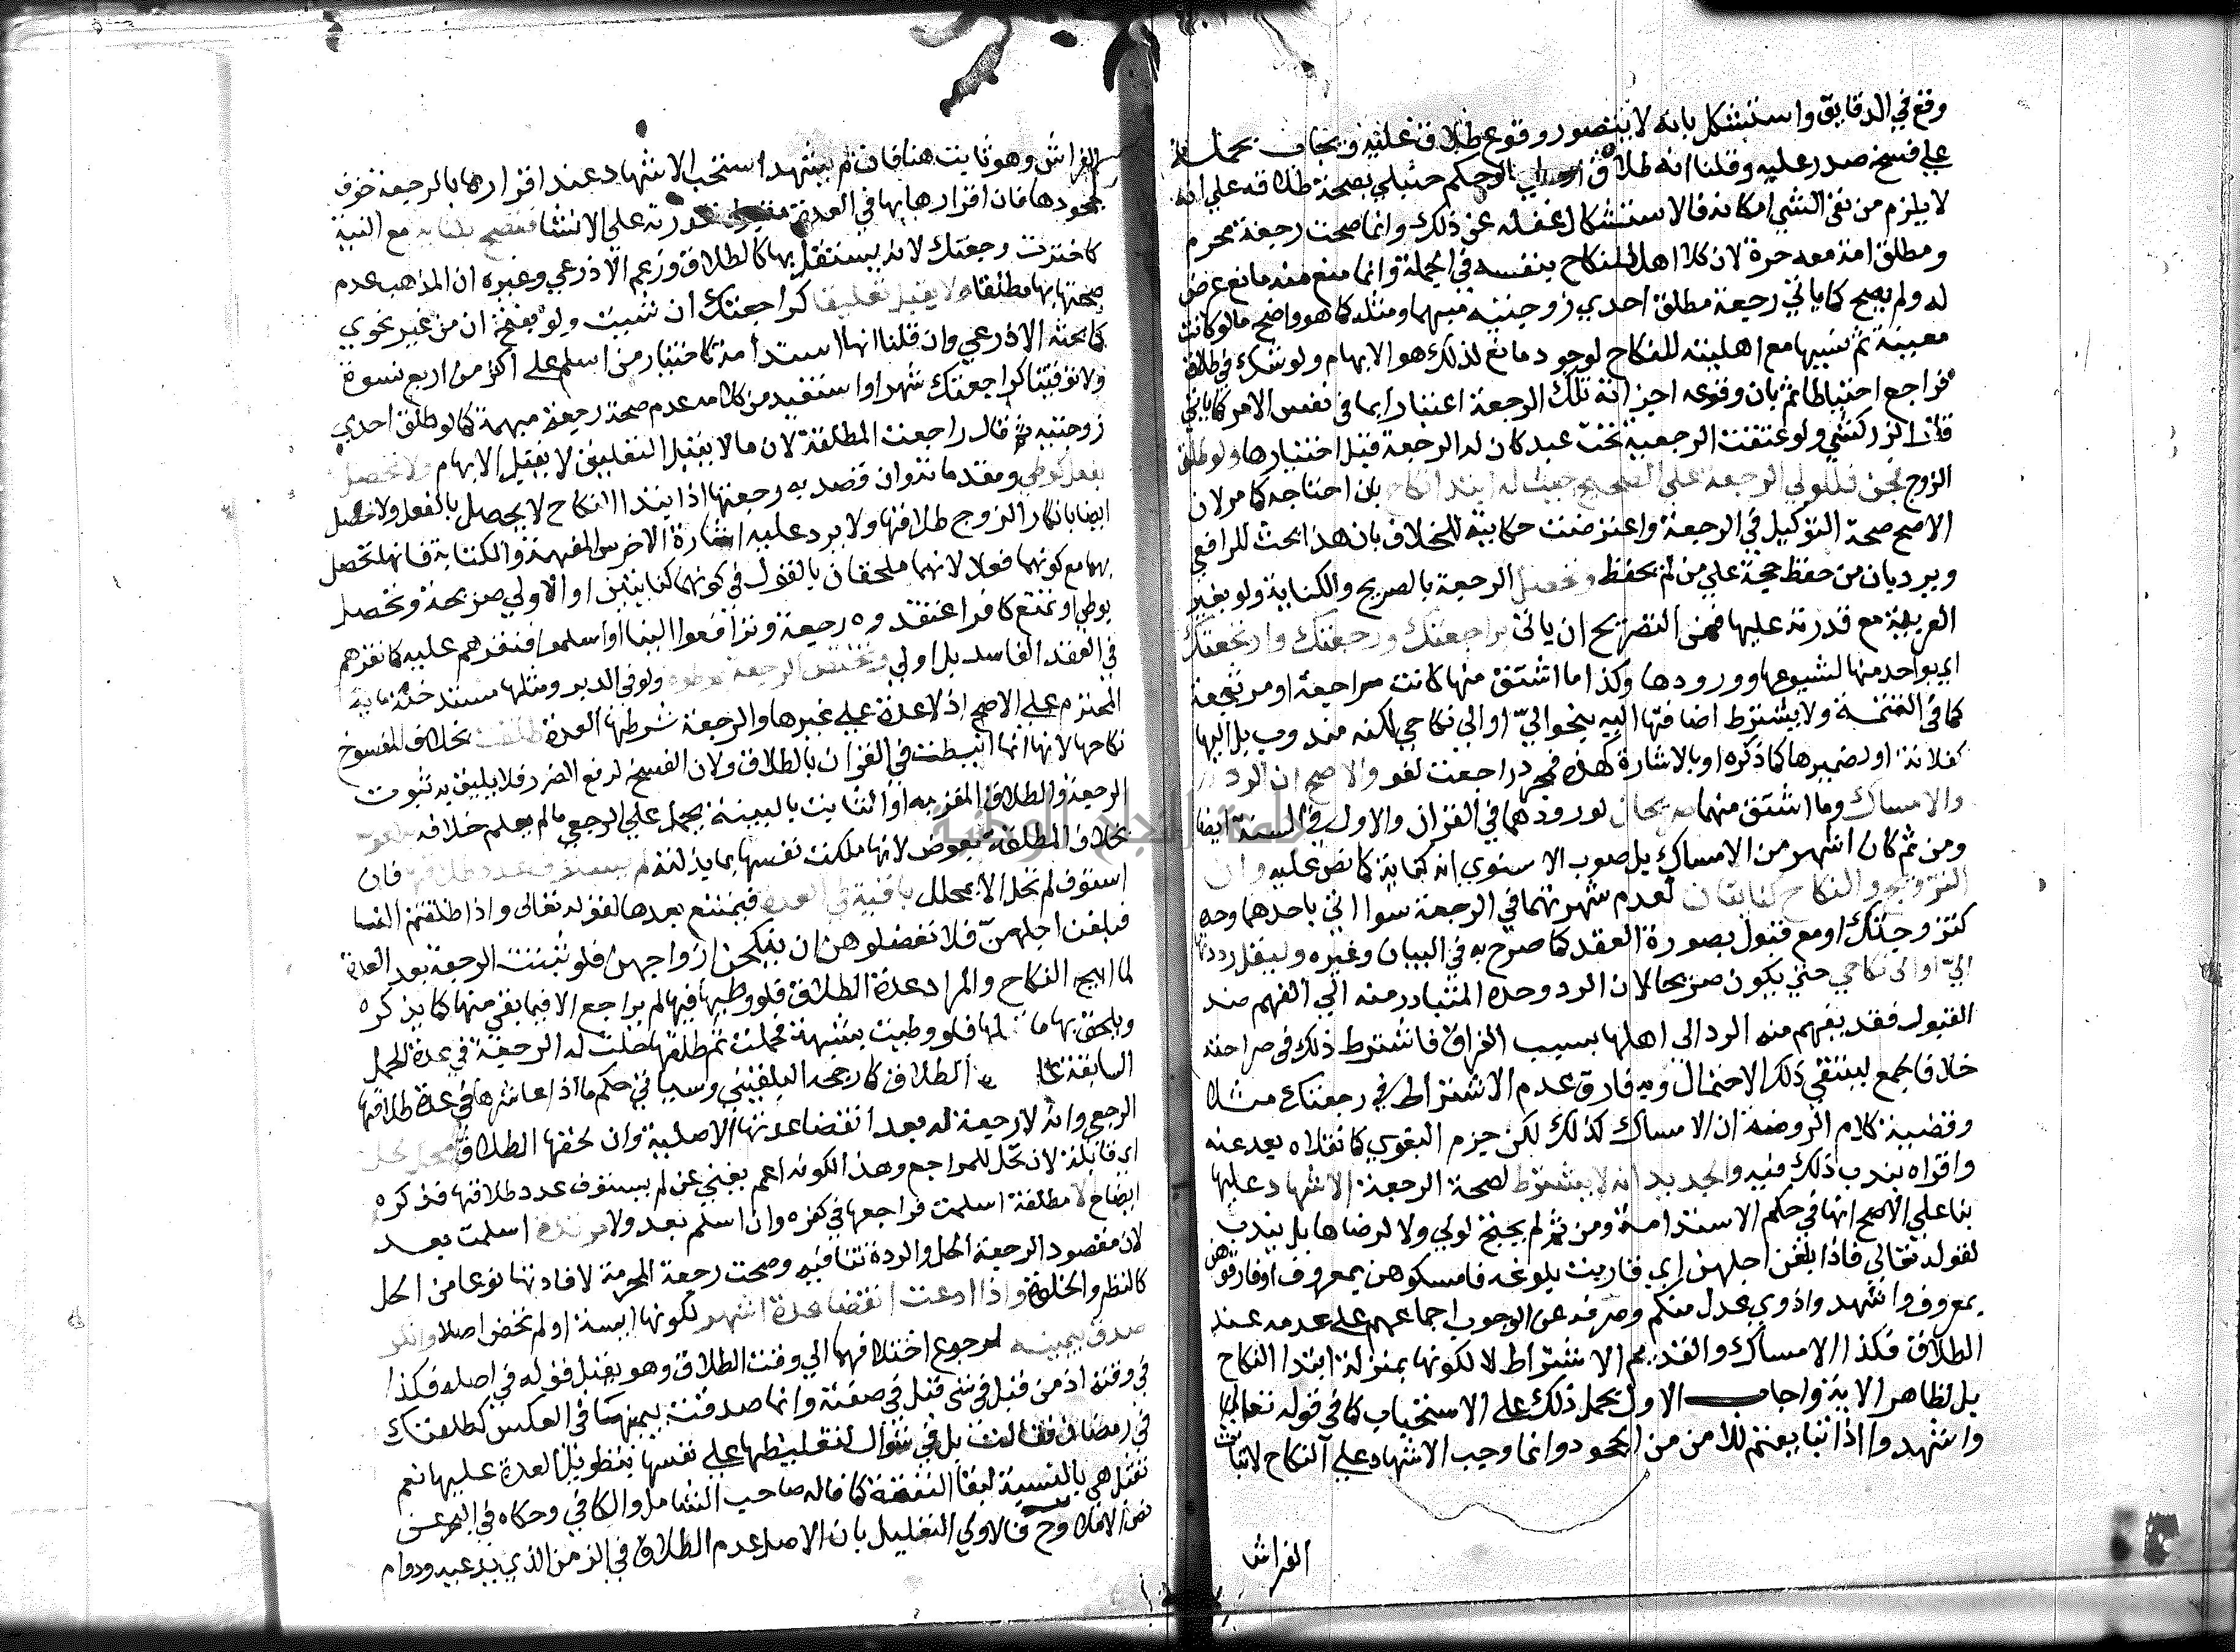 وقع في الدقايق واستشكل بانه لا يتصور وقوع طلاق عليه ويجاب بحمله
علي فسخ صدر عليه وقلنا انه طلاق او علي الحكم حنبلي بصحة طلاقه علي انه
لا يلزم من نفي الشي امكانه فالاستشكال غفلة عن ذلك وانما صحت رجعة محرم
ومطلق امة معه حرة لان كلا اهل للنكاح بنفسه في الجملة وانما منع منه مانع عرض
له ولم يصح كما ياتي رجعة مطلق احدي زوجتيه مبهما ومثله كما هو واضح ما لو كانت
معينة ثم نسيها مع اهليته للنكاح لوجود مانع لذلك هو الابهام ولو شك في طلاق
فراجع احتياطا ثم بان وقوعه اجزاته تلك الرجعة اعتبارا بما في نفس الامر كما ياتي
قال الزركشي ولو عتقت الرجعية تحت عبد كان له الرجعة قبل اختيارها ولو طلق
الزوج فجن فللولي الرجعة علي الصحيح حيث له ابتدا النكاح بان احتاجه كما مر لان
الاصح صحة التوكيل في الرجعة واعترضت حكايته للخلاف بان هذا بحث للرافعي
ويرد بان من حفظ حجة علي من لم يحفظ وتحصل الرجعة بالصريح والكناية ولو بغير
العربية مع قدرته عليها فمن التصريح ان ياتي براجعتك ورجعتك وارتجعتك
اي بواحد منها لشيوعها وورودها وكذا ما اشتق منها كانت مراجعة او مرتجعة
كما في التتمة ولا يشترط اضافتها اليه بنحو اليّ او الي نكاحي لكنه مندوب بل اليها
كفلانة او لضميرها كما ذكره او بالاشارة كهذه فمجرد راجعت لغو والاصح ان الرد
والامساك وما اشتق منهما صريحان لورودهما في القران والاول في السنة ايضا
ومن ثم كان اشهر من الامساك بل صوب الاسنوي انه كناية كما نص عليه وان
التزويج والنكاح كنايتان لعدم شهرتهما في الرجعة سوا اتي باحدهما وحده
كتزوجتك او مع قبول بصورة العقد كما صرح به في البيان وغيره وليقل رددتها
اليّ او الي نكاحي حتي يكون صريحا لان الرد وحده المتبادر منه الي الفهم ضد
القبول فقد يفهم منه الرد الي اهلها بسبب الفراق فاشترط ذلك في صراحته
خلافا لجمع لينتفي ذلك الاحتمال وبه فارق عدم الاشتراط في رجعتك مثلا
وقضية كلام الروضة ان الامساك كذلك لكن جزم البغوي كما نقلاه بعد عنه
واقراه بندب ذلك فيه والجديد انه لا يشترط لصحة الرجعة الاشهاد عليها
بنا علي الاصح انها في حكم الاستدامة ومن ثم لم يحتج لولي ولا لرضاها بل يندب
لقوله تعالي فاذا بلغن اجلهن اي قاربن بلوغه فامسكوهن بمعروف او فارقوهن
بمعروف واشهدوا ذوي عدل منكم وصرفه عن الوجوب اجماعهم علي عدمه عند
الطلاق فكذا الامساك والقديم الاشتراط لا لكونها بمنزلة ابتدا النكاح
بل لظاهر الاية واجاب الاول بحمل ذلك علي الاستحباب كما في قوله تعالي
واشهدوا اذا تبايعتم للامن من الجحود وانما وجب الاشهاد علي النكاح لاثبات
الفراش
الفراش وهو ثابت هنا فان لم يشهد استحب الاشهاد عند اقرارها بالرجعة خوف
جحودها فان اقرارها بها في العدة مقبول لقدرته علي الانشا فتصح بكناية مع النية
كاخترت رجعتك لانه يستقل بها كالطلاق وزعم الاذرعي وغيره ان المذهب عدم
صحتها بها مطلقا ولا يقبل تعليقا كراجعتك ان شيت ولو بفتح ان من غير نحوي
كما بحثه الاذرعي وان قلنا انها استدامة كاختيار من اسلم علي اكثر من اربع نسوة
ولا توقيتا كراجعتك شهرا واستفيد من كلامه عدم صحة رجعة مبهمة كما لو طلق احدي
زوجتيه ثم قال راجعت المطلقة لان ما لا يقبل التعليق لا يقبل الابهام ولا تحصل
بفعل كوطي ومقدماته وان قصد به رجعتها اذ ابتدا النكاح لا يحصل بالفعل ولا تحصل
ايضا بانكار الزوج طلاقها ولا يرد عليه اشارة الاخرس المفهمة والكتابة فانها تحصل
بهما مع كونهما فعلا لانهما ملحقان بالقول في كونهما كنايتين او الاولي صريحة وتحصل
بوطي او تمتع كافر اعتقدوه رجعة وترافعوا الينا او اسلموا فنقرهم عليه كما نقرهم
في العقد الفاسد بل اولي وتختص الرجعة بموطوءة ولو في الدبر ومثلها مستدخلة مايه
المحترم علي الاصح اذ لا عدة علي غيرها والرجعة شرطها العدة طلقت بخلاف المفسوخ
نكاحها لانها انما انيطت في القران بالطلاق ولان الفسخ لدفع الضرر فلا يليق به ثبوت
الرجعة والطلاق المقر به او الثابت بالبينة يحمل علي الرجعي ما لم يعلم خلافه بلا عوض
بخلاف المطلقة بعوض لانها ملكت نفسها بما بذلته لم يستوف عدد طلاقها فان
استوف لم تحل الا بمحلل باقية في العدة فيمتنع بعدها لقوله تعالي واذا طلقتم النسا
فبلغن اجلهنّ فلا تعضلوهن ان ينكحن ازواجهن فلو ثبتت الرجعة بعد العدة
لما ابيح النكاح والمراد عدة الطلاق فلو وطيها فيها لم يراجع الا فيما بقي منها كما يذكره
ويلحق بها ما قبلها فلو وطيت بشبهة فحملت ثم طلقها حلت له الرجعة في عدة الحمل
السابقة علي الطلاق كما رجحه البلقيني وسياتي حكم ما اذا عاشرها في عدة طلاقها
الرجعي وانه لا رجعة له بعد انقضا عدتها الاصلية وان لحقها الطلاق محل لحل
اي قابلة لان تحل للمراجع وهذا لكونه اعم يغني عن لم يستوف عدد طلاقها فذكره
ايضاح لا مطلقة اسلمت فراجعها في كفره وان اسلم بعد ولا مرتدة اسلمت بعد
لان مقصود الرجعة الحل والردة تنافيه وصحت رجعة المحرمة لافادتها نوعا من الحل
كالنظر والخلوة واذا ادعت انقضا عدة اشهر لكونها ايسة او لم تحض اصلا وانكر
صدق بيمينه لرجوع اختلافهما الي وقت الطلاق وهو يقبل قوله في اصله فكذا
في وقته اذ من قبل في شي قبل في صفته وانما صدقت بيمينها في العكس كطلقتك
في رمضان فقالت بل في شوال لتغليظها علي نفسها بتطويل العدة عليها نعم
تقبل هي بالنسبة لبقا النفقة كما قاله صاحب الشامل والكافي وحكاه في البحر عن
نص الاملا وح فالاولي التعليل بان الاصل عدم الطلاق في الزمن الذي يدعيه ودوام